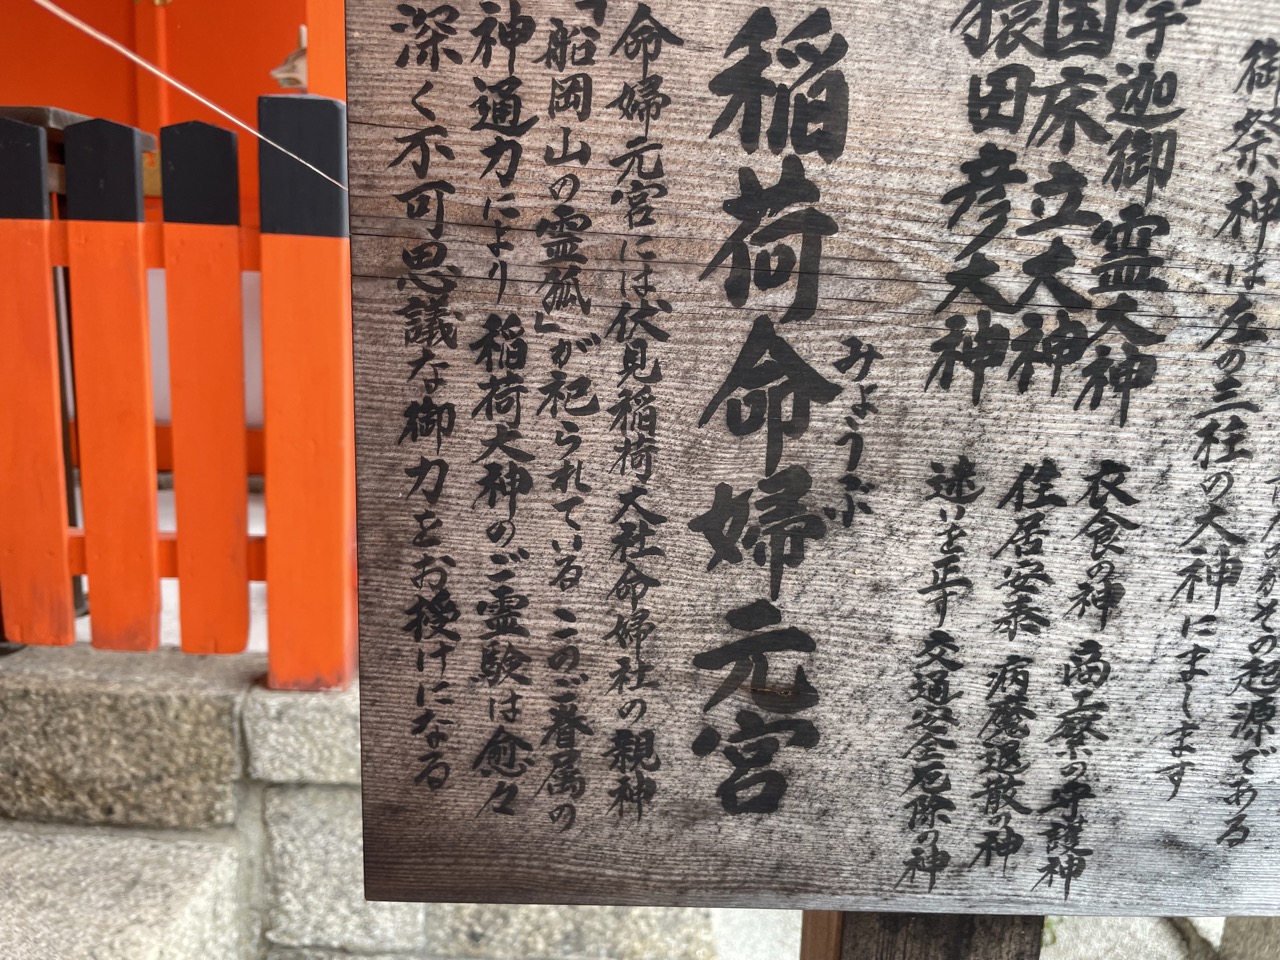 がその起源である
御祭神は左の三柱の大神にまします
宇迦御霊大神 衣食の神 商工業の守護神
国床立大神 住居安泰 病魔退散の神
猿田彦大神 迷いを正す 交通安全厄除の神
稲荷命婦元宮
みょうぶ
命婦元宮には伏見稲荷大社命婦社の親神
「船岡山の霊狐」が祀られている このご眷属の
神通力により 稲荷大神のご霊験は愈々
深く不可思議な御力をお授けになる